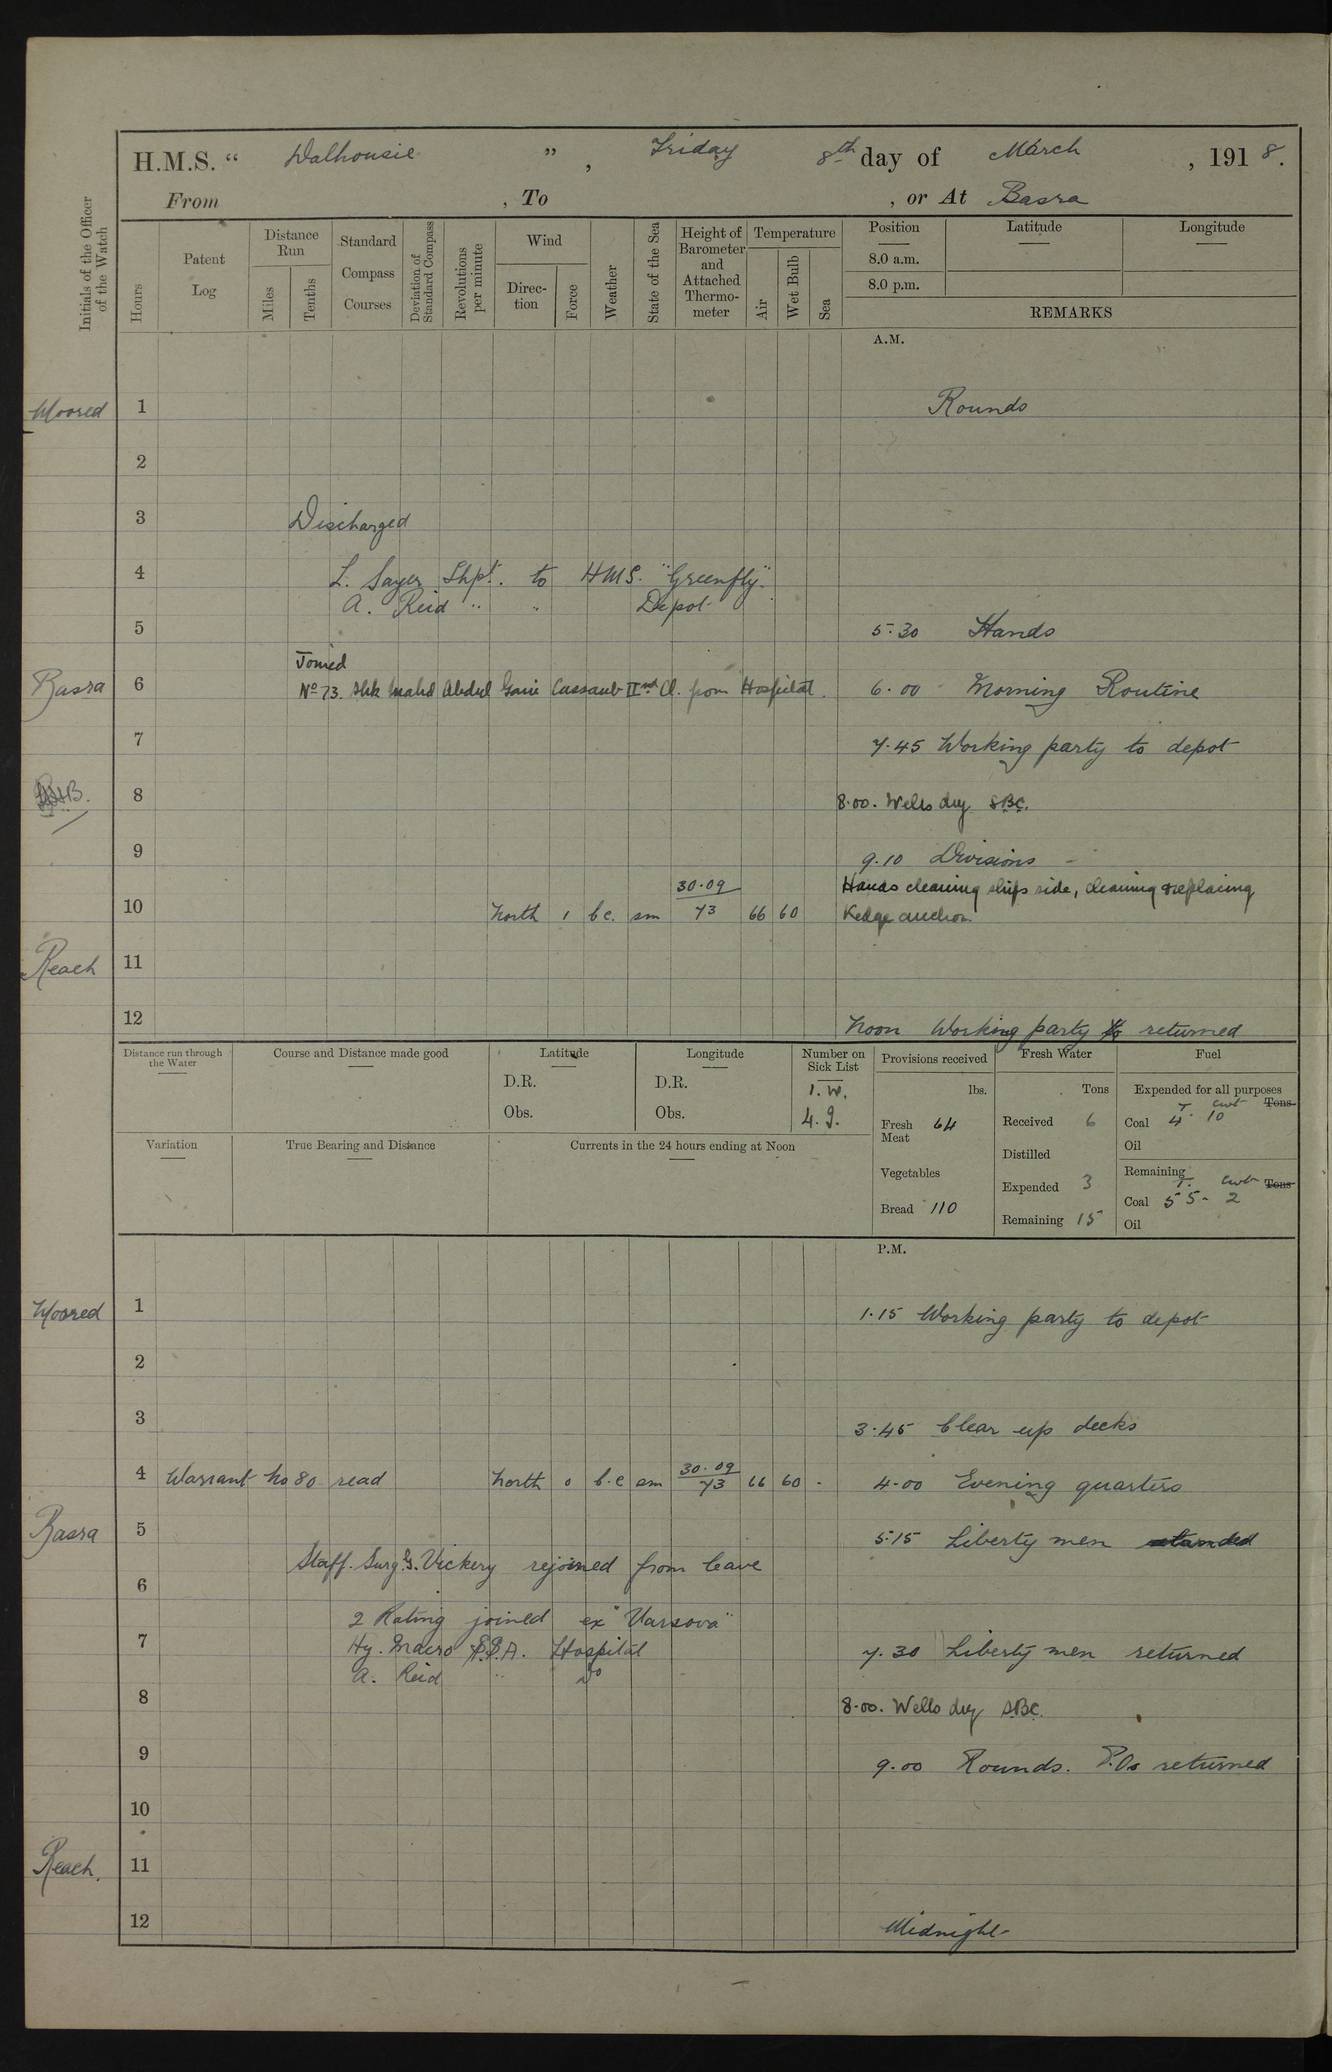 H.M.S. “ Dalhousie ” , Friday 8th day of March , 1918.
From , To , or At Basra
Initials of the Officer of the Watch
Hours
Patent Log
Distance Run
Miles
Tenths
Standard Compass Courses
Deviation of Standard Compass
Revolutions per minute
Wind
Direction
Force
Weather
State of the Sea
Height of Barometer and Attached Thermometer
Temperature
Air
Wet Bulb
Sea
Position
8.0 a.m.
8.0 p.m.
Latitude
Longitude
REMARKS
A.M.
Moored 1 Rounds
2
3 Discharged
4 L. Sayer Shpt. to HMS. "Greenfly".
A. Reid " " Depot
5 5.30 Hands
Joined
Basra 6 No 73. Shk Mahd Abdul Gani Cassaub IInd Cl. from Hospital. 6.00 Morning Routine
7 7.45 Working party to depot
8 8.00. Wells dry SBC.
9 9.10 Divisions -
Hands cleaning ships side, cleaning & replacing
10 North 1 b.c. sm 30.09 73 66 60 Kedge anchor.
Reach 11
12 Noon Working party to returned
Distance run through the Water
Course and Distance made good
Latitude
D.R.
Obs.
Longitude
D.R.
Obs.
Number on Sick List
1. W.
4. I.
Provisions received
lbs.
Fresh Meat 64
Vegetables
Bread 110
Fresh Water
Tons
Received 6
Distilled
Expended 3
Remaining 15
Fuel
Expended for all purposes
T. cwt Tons
Coal 4. 10
Oil
Remaining
T. cwt Tons
Coal 55 - 2
Oil
Variation
True Bearing and Distance
Currents in the 24 hours ending at Noon
P.M.
Moored 1 1.15 Working party to depot
2
3 3.45 Clear up decks
4 Warrant No 80 read North 0 b.c sm 30.09 73 66 60 - 4.00 Evening quarters
Basra 5 5.15 Liberty men
Staff. Surg. G. Vickery rejoined from leave
6
2 Rating joined ex "Varsova"
7 Hy. Macro S.P.A. Hospital 7.30 Liberty men returned
A. Reid " Do
8 8.00. Wells dry SBC.
9 9.00 Rounds. P.Os returned
10
Reach. 11
12 Midnight